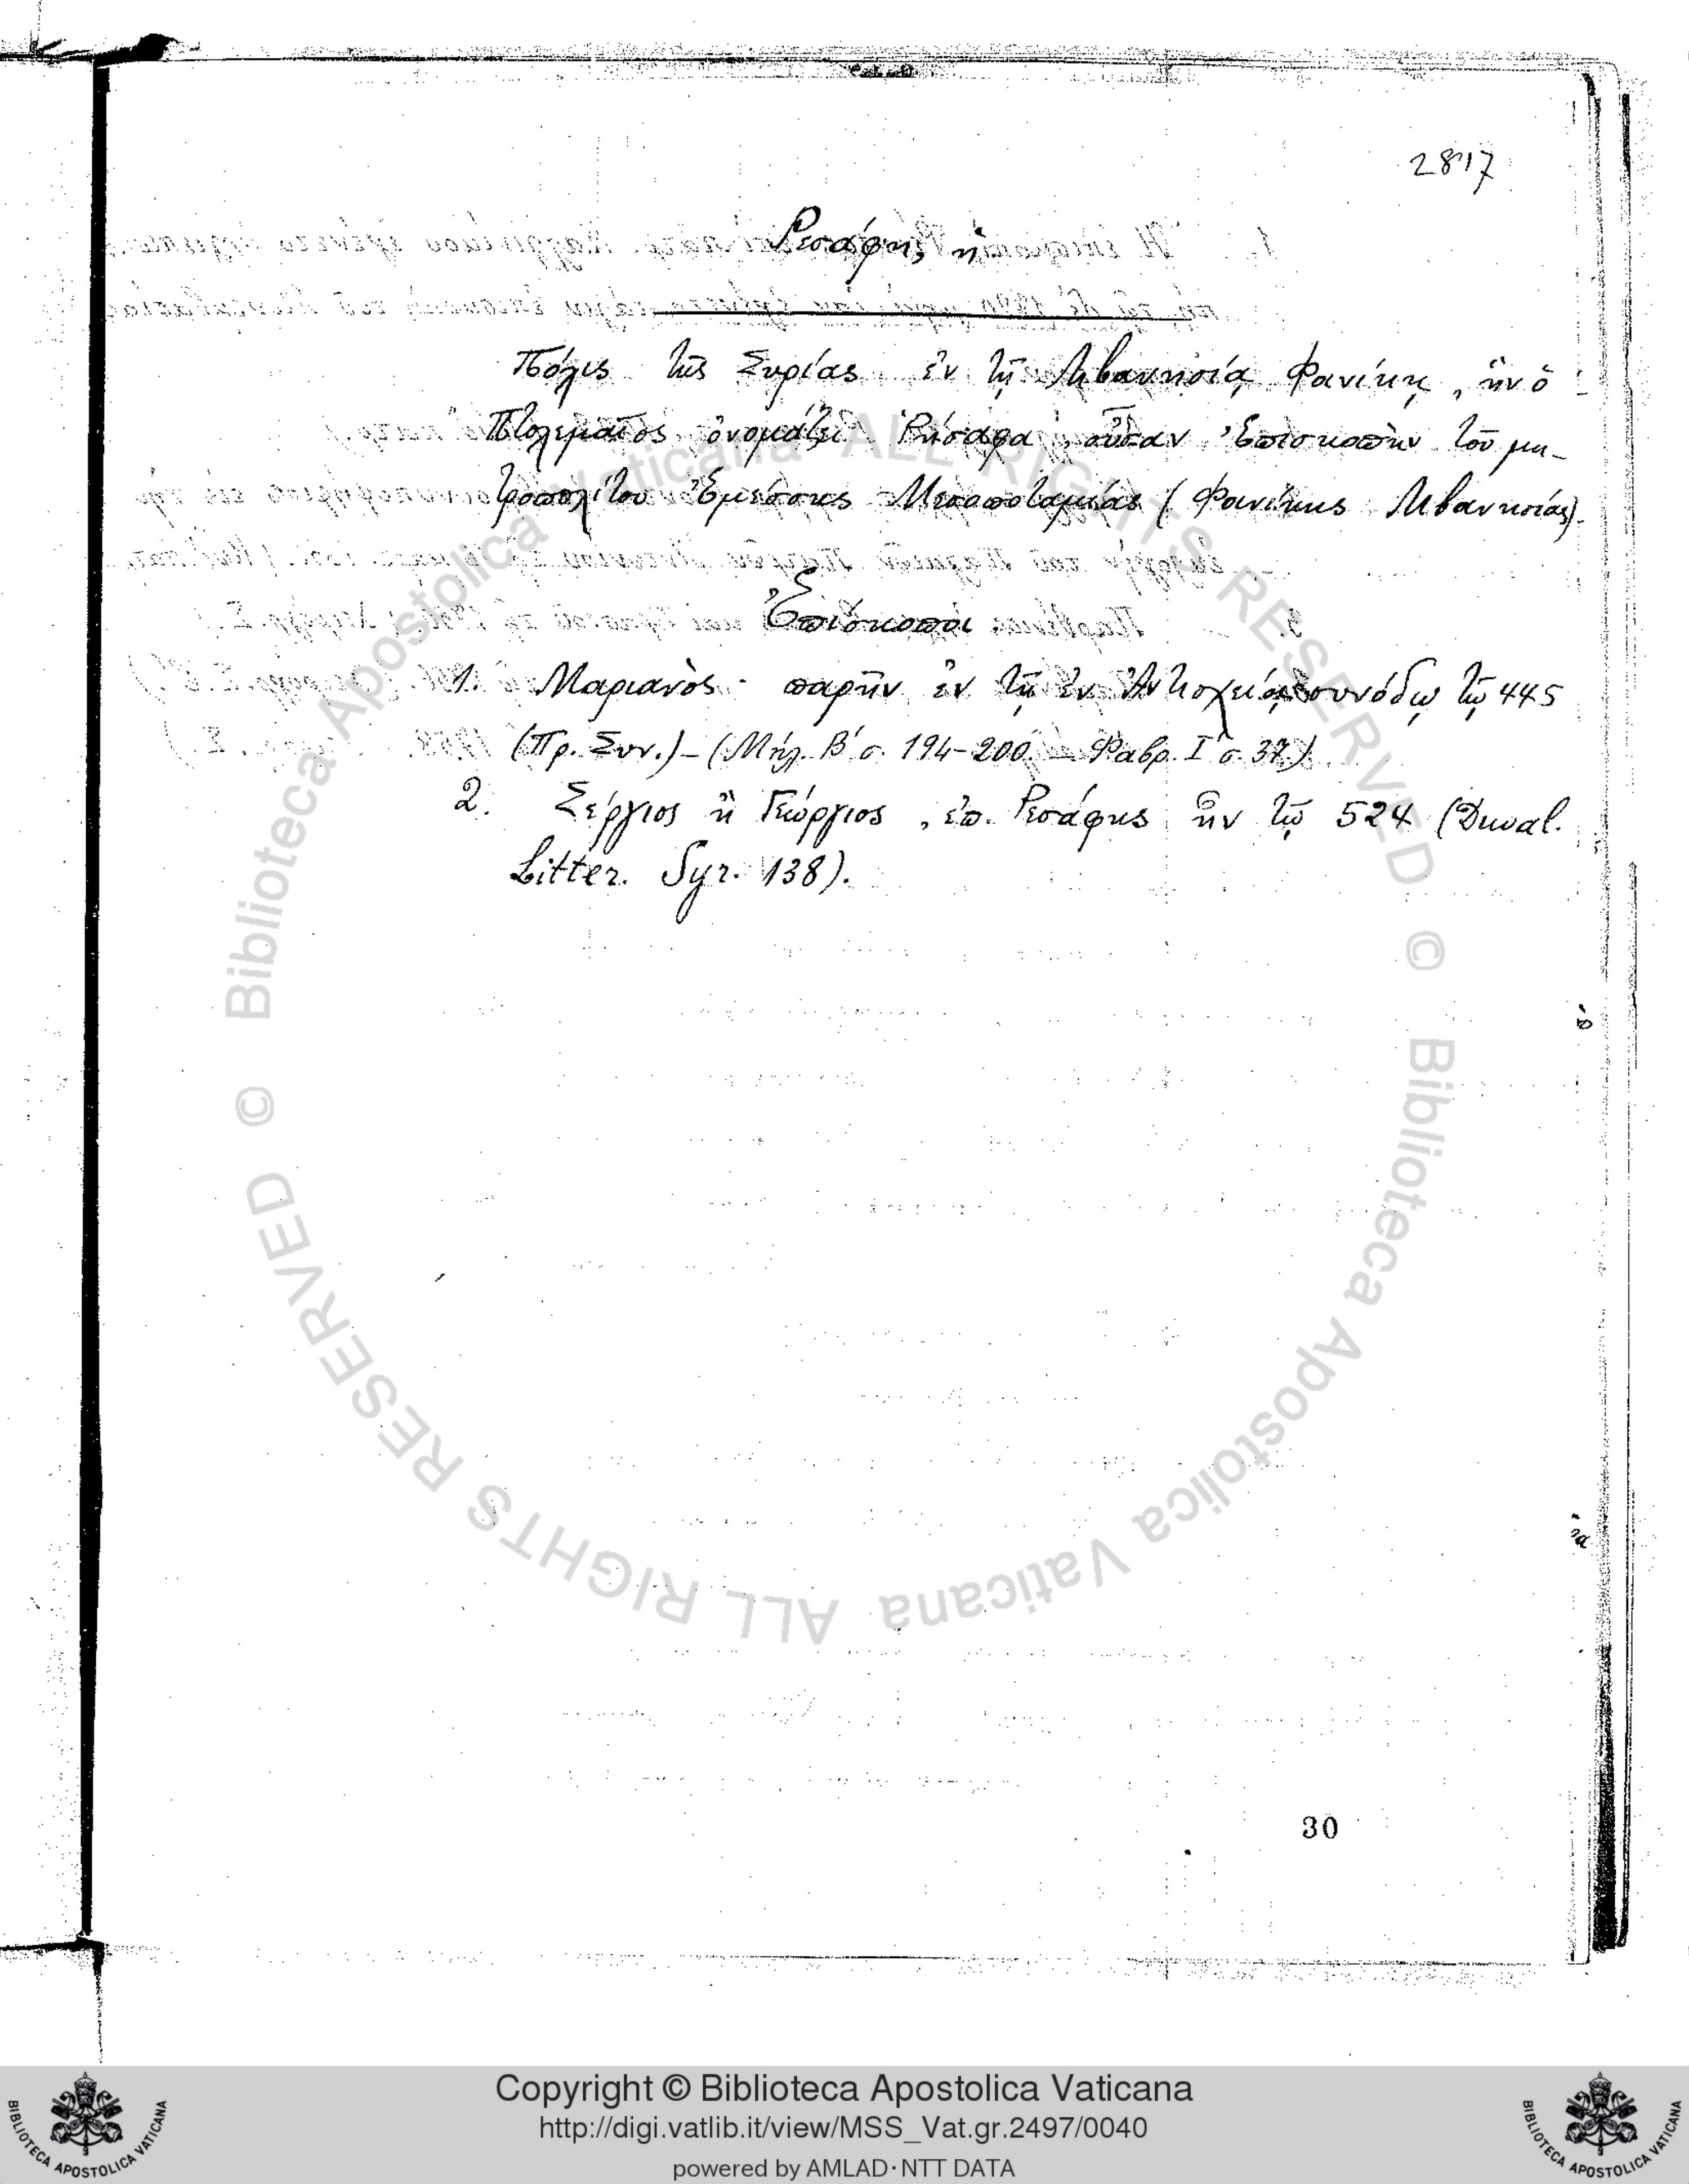 2817
Ρεσάφης ἡ
Πόλις τῆς Συρίας ἐν τῇ Λιβανησίᾳ Φανίκῃ, ἣν ὁ
Πτολεμαῖος ὀνομάζει Ῥήσαφα, οὖσαν Ἐπισκοπὴν τοῦ μη-
τροπολίτου Ἐμέσσης Μεσοποταμίας (Φανίκης Λιβανησίας).
Ἐπίσκοποι
1. Μαριανὸς· παρῆν ἐν τῇ ἐν Ἀντιοχείᾳ συνόδῳ τῷ 445
(Πρ. Συν.) – (Μήλ. Β΄ σ. 194-200. – Φαβρ. Ι σ. 37.)
2. Σέργιος ἢ Γεώργιος, ἐπ. Ρεσάφης ἦν τῷ 524 (Duval.
Litter. Syr. 138).
30
© Biblioteca Apostolica Vaticana ALL RIGHTS RESERVED
© Biblioteca Apostolica Vaticana ALL RIGHTS RESERVED
Copyright © Biblioteca Apostolica Vaticana
http://digi.vatlib.it/view/MSS_Vat.gr.2497/0040
powered by AMLAD·NTT DATA
BIBLIOTECA APOSTOLICA VATICANA
BIBLIOTECA APOSTOLICA VATICANA